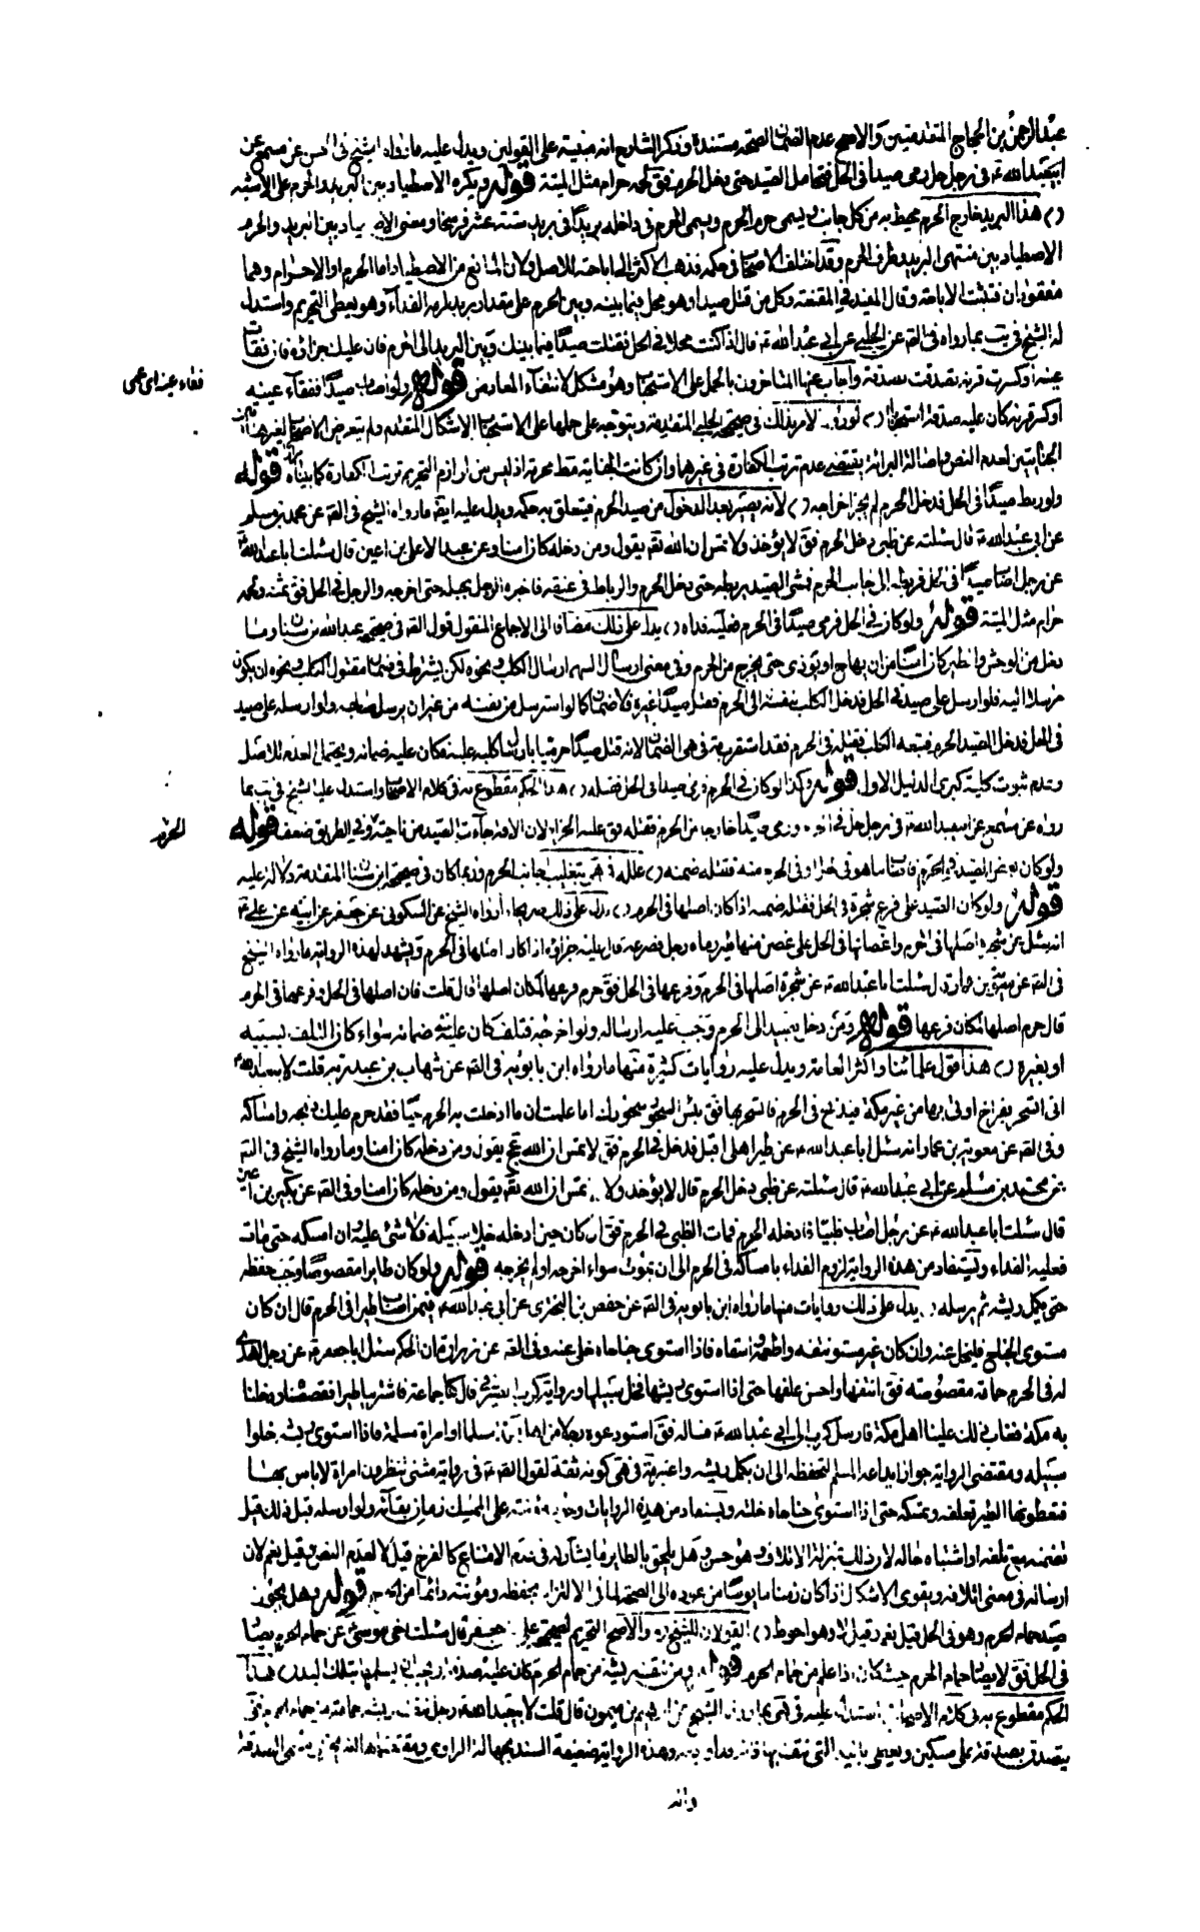 عبد الرحمن بن الحجاج المتقدمتين والاصح عدم الضمان لصحة مستنده وذكر الشارح انه مبنية على القولين ويدل عليه ما رواه الشيخ في عن مسمع عن
ابيعبدالله ع في رجل حل رمى صيدا في الحل فتحامل الصيد حتى دخل الحرم فق لحمه حرام مثل الميتة قوله ويكره الاصطياد بين البريد والحرم على الاشبه
هذا البريد خارج الحرم محيط به من كل جانب ويسمى حرم الحرم ويسمى الحرم في داخله بريدا في بريد ستة عشر فرسخا ومعنى الاصطياد بين البريد والحرم
الاصطياد بين منتهى البريد وطرف الحرم وقد اختلف الاصحاب في حكمه فذهب الاكثر الى اباحته للاصل ولان المانع من الاصطياد اما الحرم او الاحرام وهما
مفقودان فتثبت الاباحة وقال المفيد في المقنعة وكل من قتل صيدا وهو محل فيما بينه وبين الحرم على مقدار بريد لزمه الفداء وهو يعطى التحريم واستدل
له الشيخ في يب بما رواه في الصه عن الحلبي عن ابي عبدالله ع قال اذا كنت محلا في الحل فقتلت صيدا فيما بينك وبين البريد الى الحرم فان عليك جزاؤه فان فقات
عينه او كسرت قرنه تصدقت بصدقة واجاب عنها المتاخرون بالحمل على الاستحباب وهو مشكل لانتفاء المعارض قوله ولو اصاب صيدا ففقاء عينه
فقاء عينه اى عمى
او كسر قرنه كان عليه صدقة استحبابا لورود الامر بذلك في صحيحة الحلبي المتقدمة ويتوجه على حملها على الاستحباب الاشكال المتقدم ولم يتعرض الاصحاب لغير هاتين
الجنايتين لعدم النص واصالة البرائة يقتضى عدم ترتب الكفارة في غيرهما وان كانت الجناية محرمة اذ ليس من لوازم التحريم ترتب الكفارة كما بيناه قوله
ولو ربط صيدا في الحل فدخل الحرم لم يجز اخراجه لانه يصير بعد الدخول من صيد الحرم فيتعلق به حكمه ويدل عليه ايضا ما رواه الشيخ في الصه عن محمد بن مسلم
عن ابي عبدالله ع قال سئلته عن ظبي دخل الحرم فق لا يؤخذ ولا يمس ان الله تع يقول ومن دخله كان امنا وعن عبد الاعلى بن اعين قال سئلت ابا عبدالله ع
عن رجل اصاب صيدا في الحل فربطه الى جانب الحرم فمشى الصيد بربطه حتى دخل الحرم والرباط في عنقه فاجتره الرجل بحبله حتى اخرجه والرجل في الحل فق ثمنه ولحمه
حرام مثل الميتة قوله ولو كان في الحل فرمى صيدا في الحرم فعليه فداه يدل على ذلك مضافا الى الاجماع المنقول قول الصه في صحيحة عبدالله بن سنان وما
دخل من الوحش والطير كان امنا من ان يهاج او يؤذى حتى يخرج من الحرم وفي معنى ارسال السهم ارسال الكلب ونحوه لكن يشترط في ضمان مقتول الكلب ونحوه ان يكون
مرسلا اليه فلو ارسل على صيد في الحل فدخل الكلب بنفسه الى الحرم فقتل صيدا غيره فلا ضمان كما لو استرسل من نفسه من غير ان يرسل صاحبه ولو ارسله على صيد
في الحل فدخل الصيد الحرم فتبعه الكلب فقتله في الحرم فقد استقرب في هي الضمان لانه قتل صيدا حرميا بارسال كلبه عليه فكان عليه ضمانه ويحتمل العدم للاصل
وعدم ثبوت كلية كبرى الدليل الاول قوله وكذا لو كان في الحرم فرمى صيدا في الحل فقتله هذا الحكم مقطوع به في كلام الاصحاب واستدل عليه الشيخ في يب بما
رواه عن مسمع عن ابيعبدالله ع في رجل حل في الحرم ورمى صيدا خارجا من الحرم فقتله فق عليه الجزاء لان الافة جاءت الصيد من ناحية الحرم وفي الطريق ضعف قوله
الحرم
ولو كان بعض الصيد في الحرم فاصاب ما هو في الحل او في الحرم منه فقتله ضمنه علله في هي بتغليب جانب الحرم وربما كان في صحيحة ابن سنان المتقدمة دلالة عليه
قوله ولو كان الصيد على فرع شجرة في الحل فقتله ضمنه اذا كان اصلها في الحرم يدل على ذلك صريحا ما رواه الشيخ عن السكوني عن جعفر عن ابيه عن علي ع
انه سئل عن شجرة اصلها في الحرم واغصانها في الحل على غصن منها طير رماه رجل فصرعه قال عليه جزاؤه اذا كان اصلها في الحرم ويشهد لهذه الرواية ما رواه الشيخ
في الصه عن معوية بن عمار قال سئلت ابا عبدالله ع عن شجرة اصلها في الحرم وفرعها في الحل فق حرم فرعها لمكان اصلها قال قلت فان اصلها في الحل وفرعها في الحرم
قال حرم اصلها لمكان فرعها قوله ومن دخل بصيد الى الحرم وجب عليه ارساله ولو اخرجه فتلف كان عليه ضمانه سواء كان التلف بسببه
او بغيره هذا قول علمائنا واكثر العامة ويدل عليه روايات كثيرة منها ما رواه ابن بابويه في الصه عن شهاب بن عبد ربه قلت لابيعبدالله ع
انى اتسحر بفراخ اوتى بها من غير مكة فتذبح في الحرم فاتسحر بها فق بئس السحور سحورك اما علمت ان ما ادخلت به الحرم حيا فقد حرم عليك ذبحه وامساكه
وفي الصه عن معوية بن عمار انه سئل ابا عبدالله ع عن طير اهلى اقبل فدخل الحرم فق لا يمس ان الله عج يقول ومن دخله كان امنا وما رواه الشيخ في الصه
عن محمد بن مسلم عن ابي عبدالله ع قال سئلته عن ظبي دخل الحرم قال لا يؤخذ ولا يمس ان الله تع يقول ومن دخله كان امنا وفي الصه عن بكير بن اعين
قال سئلت ابا عبدالله ع عن رجل اصاب ظبيا فادخله الحرم فمات الظبي في الحرم فق ان كان حين ادخله خلا سبيله فلا شئ عليه وان امسكه حتى مات
فعليه الفداء ويستفاد من هذه الرواية لزوم الفداء بامساكه في الحرم الى ان يموت سواء اخرجه او لم يخرجه قوله ولو كان طايرا مقصوصا وجب حفظه
حتى يكمل ريشه ثم يرسله يدل على ذلك روايات منها ما رواه ابن بابويه في الصه عن حفص بن البخترى عن ابي عبدالله ع فيمن اصاب طيرا في الحرم قال ان كان
مستوى الجناح فليخل عنه وان كان غير مستو نتفه واطعمه واسقاه فاذا استوى جناحاه خلى عنه وفي الصه عن زرارة ان الحكم سئل ابا جعفر ع عن رجل اهدى
له في الحرم حمامة مقصوصة فق انتفها واحسن علفها حتى اذا استوى ريشها فخل سبيلها ورواية كرب الصيرفى قال كنا جماعة فاشترينا طيرا فقصصناه ودخلنا
به مكة فعاب ذلك علينا اهل مكة فارسل كرب الى ابي عبدالله ع فساله فق استودعوه رجلا من اهل مكة مسلما او امراة مسلمة فاذا استوى ريشه خلوا
سبيله ومقتضى الرواية جواز ايداعه المسلم لتحفظه الى ان يكمل ريشه واعتبر في هي كونه ثقة لقول الصه ع في رواية مثنى انظرون امراة لا باس بها
فتعطونها الطير تعلفه وتمسكه حتى اذا استوى جناحاه خلته ويستفاد من هذه الروايات وجوب مؤنته على الممسك زمان بقائه ولو ارسله قبل ذلك قيل
تضمنه مع تلفه او اشتباه حاله لان ذلك بمنزلة الاتلاف وهو حسن وهل يلحق بالطاير ما يشاركه في عدم الامتناع كالفرخ قيل لا لعدم النص وقيل نعم لان
ارساله في معنى اتلافه ويقوى الاشكال اذا كان زمنا مايوسا من عوده الى الصحة لما في الالتزام بحفظه ومؤنته دائما من الحرج قوله وهل يجوز
صيد حمام الحرم وهو في الحل قيل نعم وقيل لا وهو احوط القولان للشيخ ره والاصح التحريم لصحيحة علي بن جعفر قال سئلت اخي موسى ع عن حمام الحرم يصاد
في الحل فق لا يصاد حمام الحرم حيث كان اذا علم من حمام الحرم قوله ومن نتف ريشة من حمام الحرم كان عليه صدقة ويجب ان يسلمها بتلك اليد هذا
الحكم مقطوع به في كلام الاصحاب واستدل عليه في هي بما رواه الشيخ عن ابرهيم بن ميمون قال قلت لابيعبدالله ع رجل نتف ريشة حمامة من حمام الحرم فق
يتصدق بصدقة على مسكين ويعطى باليد التى نتف بها فانه قد اوجعه وهذه الرواية ضعيفة السند بجهالة الراوى ومقتضاها
وانه